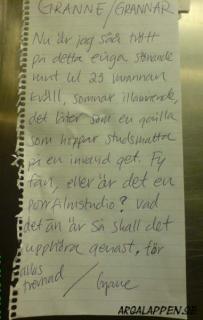 GRANNE/GRANNAR
Nu är jag såå trött
på detta eviga störande
runt kl 23 varannan
kväll, somnar illamående,
det låter som en gorilla
som hoppar studsmatta
på en invalid get. Fy
fan, eller är det en
porrfilmstudio? Vad
det än är så skall det
upphöra genast, för
allas
trevnad
/Granne
ARGALAPPEN.SE